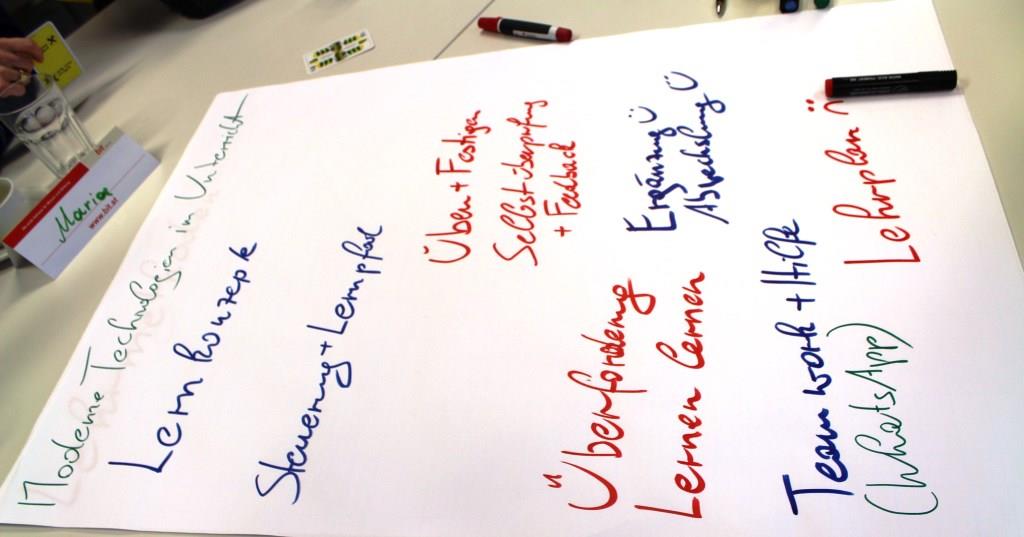 Moderne Technologien im Unterricht
Lernkonzepte
Steuerung + Lernpfad
Üben + Festigen
Selbstüberprüfung
+ Feedback
Überforderung
Lernen lernen
Ergänzung
Abwechslung
Teamwork + Hilfe
(WhatsApp)
Lehrplan
Maria
www.bit.at